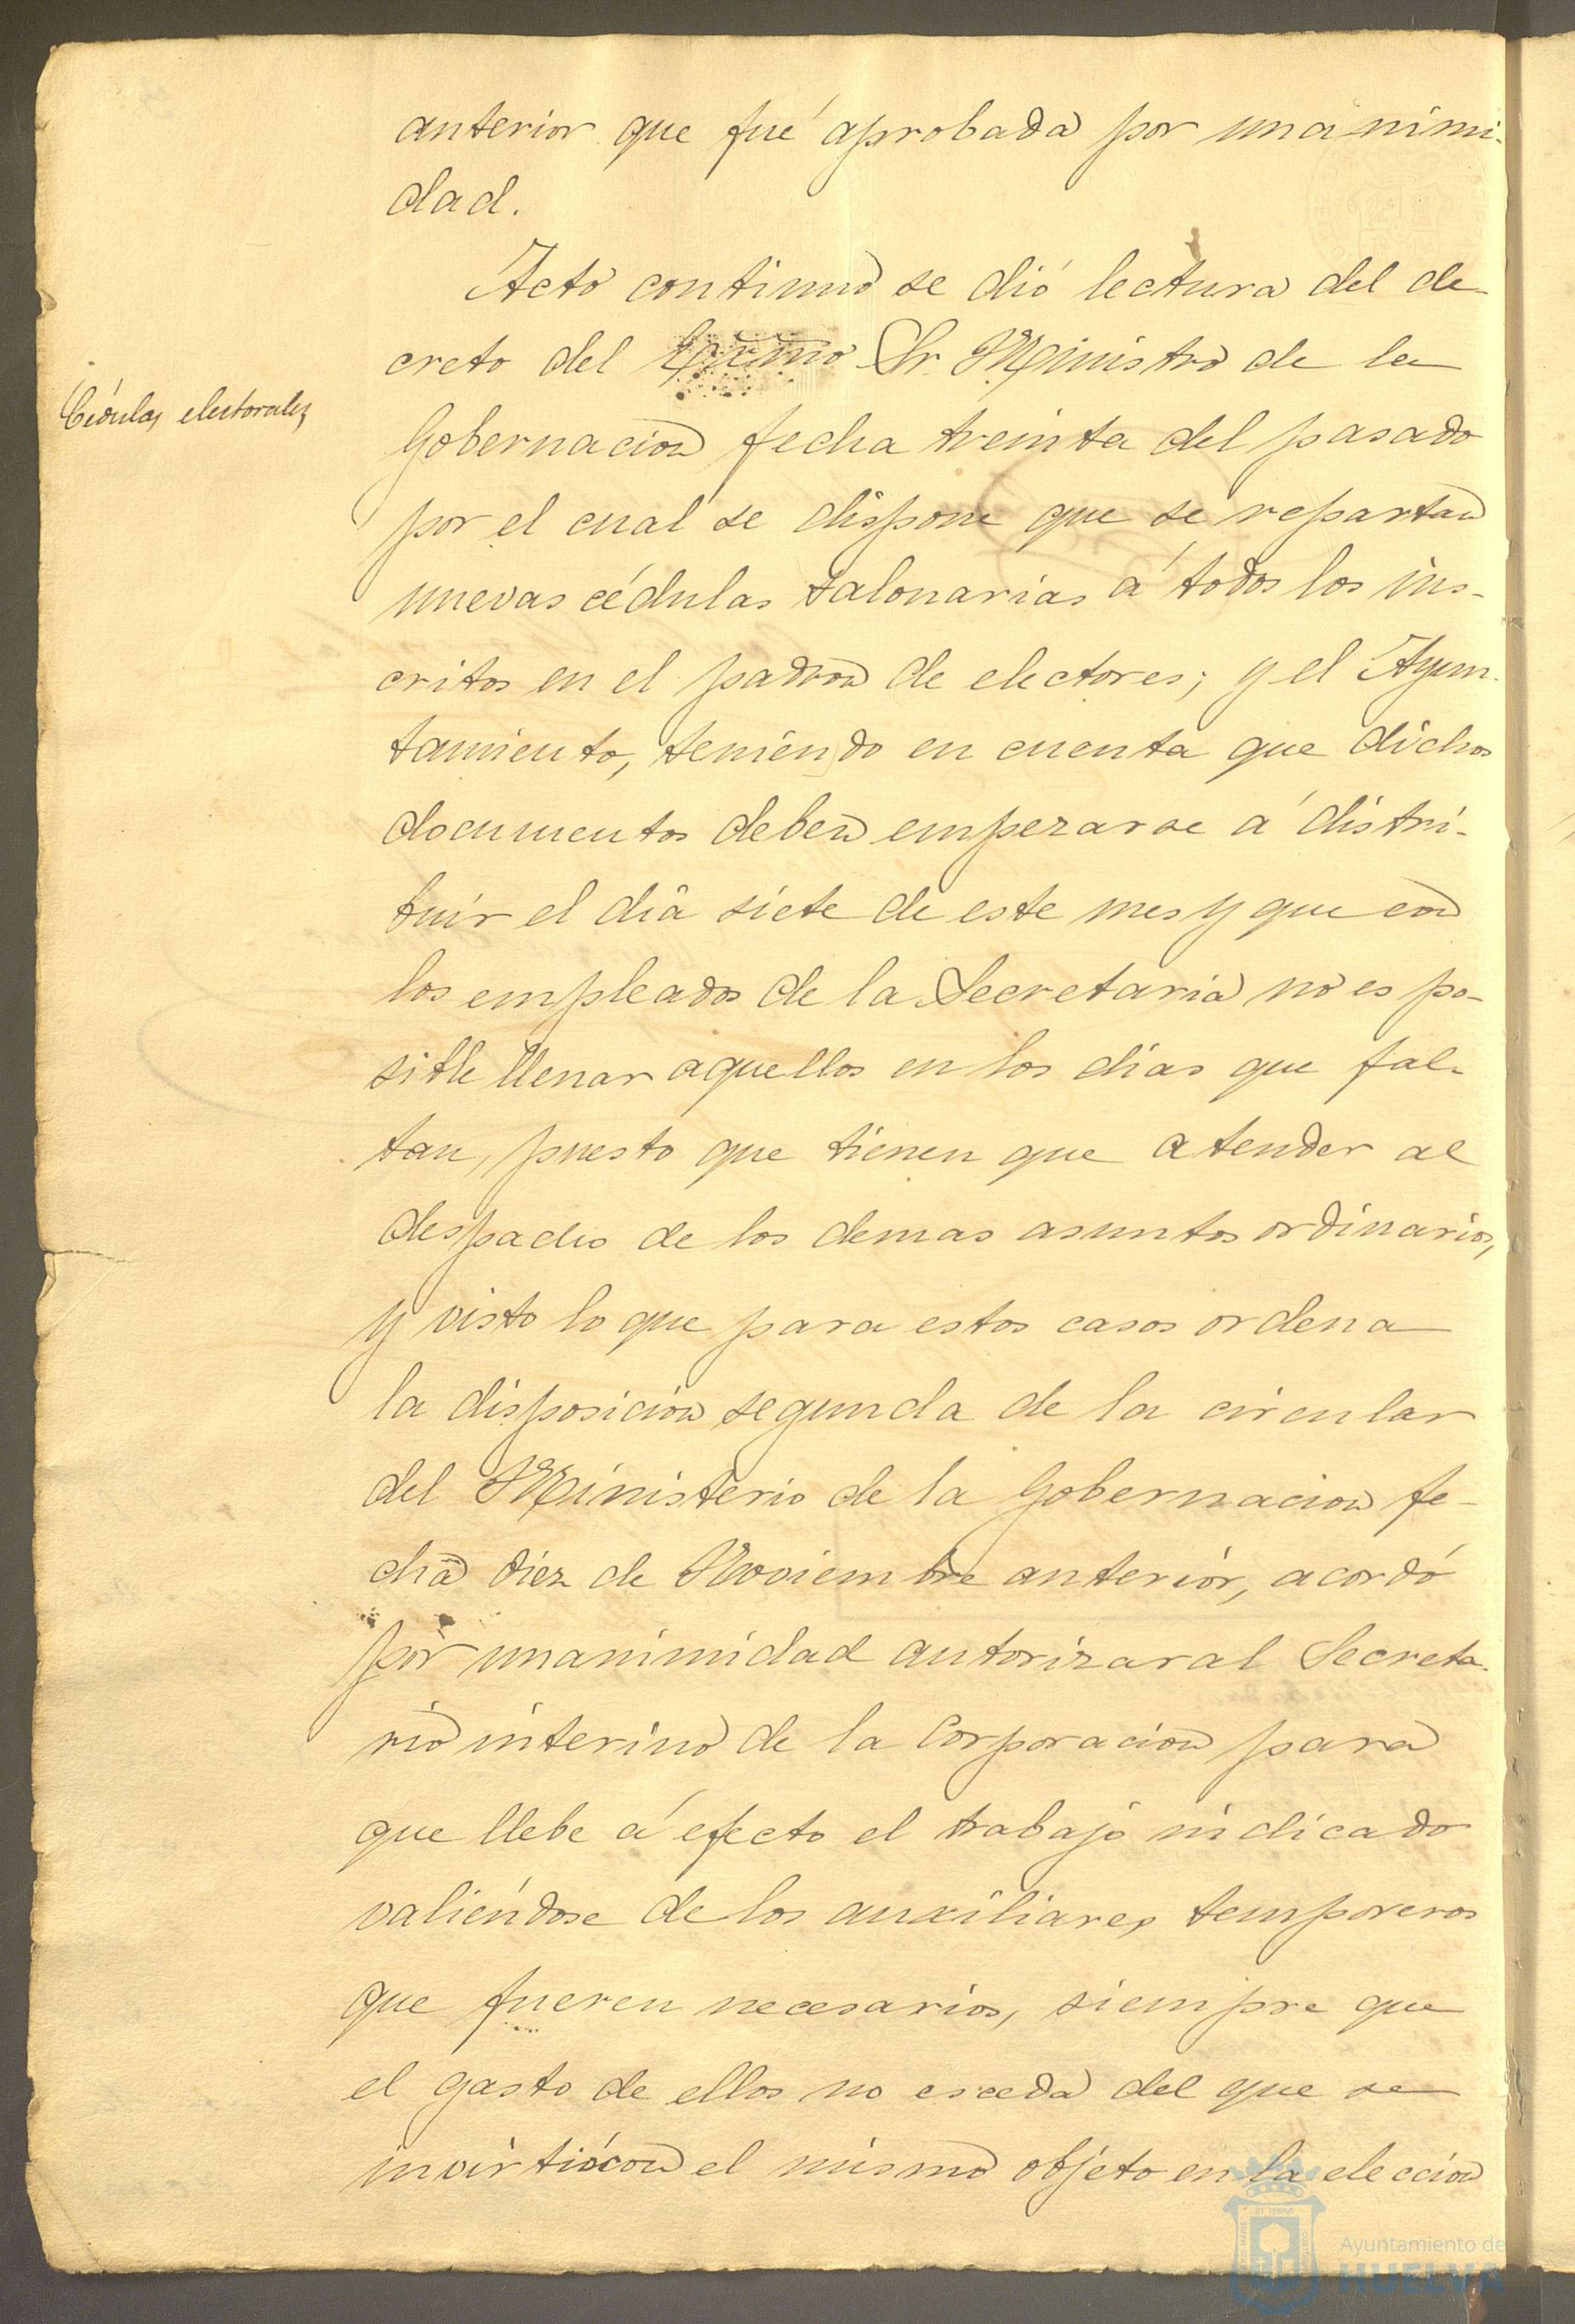 anterior que fué aprobada por unanimi-
dad.
Acto continuo se dió lectura del de-
creto del Excmo Sr. Ministro de la
Cédulas electorales
Gobernacion fecha treinta del pasado
por el cual se dispone que se repartan
nuevas cédulas talonarias á todos los ins-
critos en el padron de electores; y el Ayun-
tamiento, teniendo en cuenta que dichos
documentos deben empezarse á distri-
buir el dia siete de este mes y que con
los empleados de la Secretaria no es po-
sible llenar aquellos en los dias que fal-
tan, puesto que tienen que atender al
despacho de los demas asuntos ordinarios,
y visto lo que para estos casos ordena
la disposicion segunda de la circular
del Ministerio de la Gobernacion fe-
cha diez de Noviembre anterior, acordó
por unanimidad autorizar al Secreta-
rio interino de la Corporacion para
que llebe á efecto el trabajo indicado
valiéndose de los auxiliares temporeros
que fueren necesarios, siempre que
el gasto de ellos no esceda del que se
invirtió con el mismo objeto en la eleccion
Ayuntamiento de
HUELVA